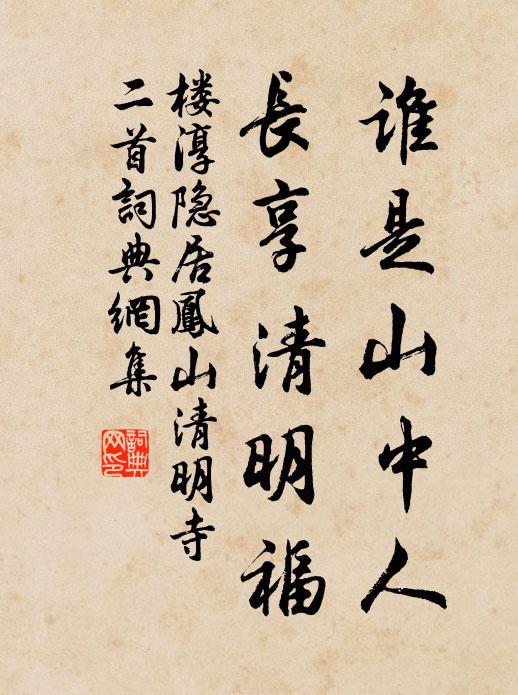 誰是山中人
長享清明福
楼淳隐居鳳山清明寺
二首詞典網集
詞典
网印